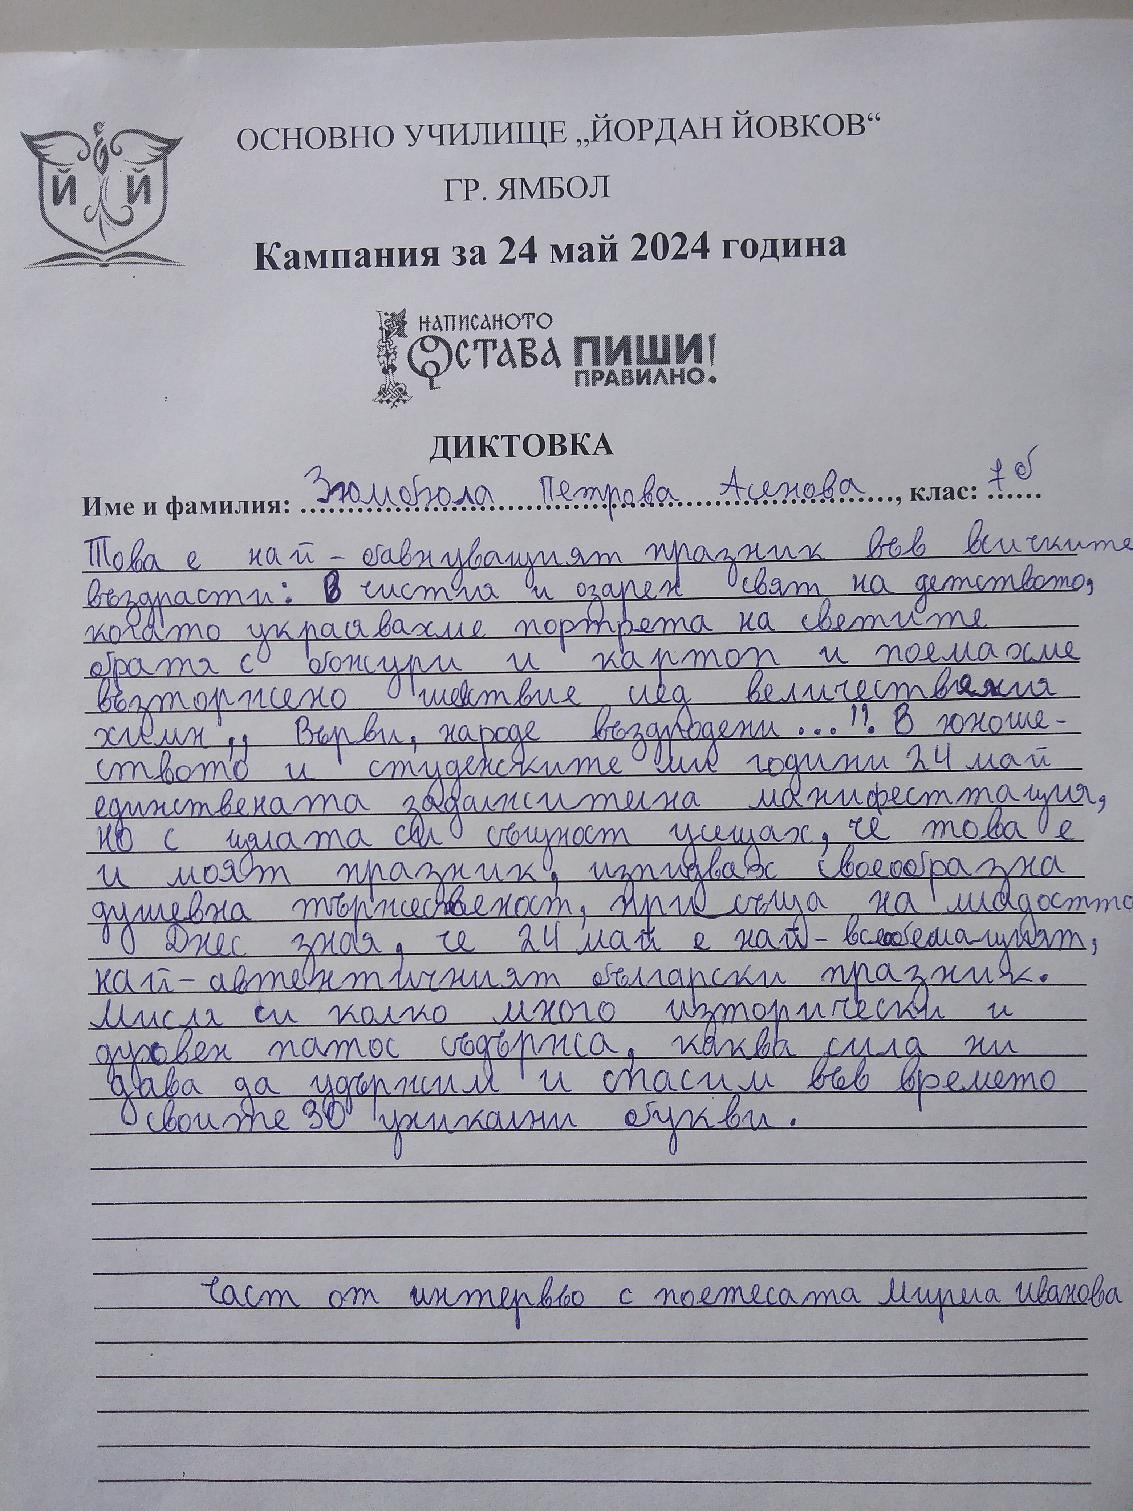 Й Й
ОСНОВНО УЧИЛИЩЕ „ЙОРДАН ЙОВКОВ“
ГР. ЯМБОЛ
Кампания за 24 май 2024 година
НАПИСАНОТО
ОСТАВА ПИШИ!
ПРАВИЛНО.
ДИКТОВКА
Име и фамилия: Зюмбюла Петрова Асенова, клас: 7 б
Това е най-бавнуващият празник във всичките
въздрасти: В чистия и озарен свят на детството,
когато украсявахме портрета на светите
братя с божури и картон и поемахме
възторжено шествие след величествения
химн „ Върви, народе въздродени...". В юноше-
ството и студенските ми години 24 май
единствената задължителна манифесттация,
но с цялата си същност усещах, че това е
и моят празник, изпидвах своеобразна
душевна тържественост, при слъца на младостта
Днес зная, че 24 май е най-всеобемащият,
най-автентичният български празник.
Мисля си колко много изторически и
духовен патос съдържа, каква сила ни
дава да удържим и спасим във времето
своите 30 уникални букви.
Част от интервю с поетесата Мирела Иванова